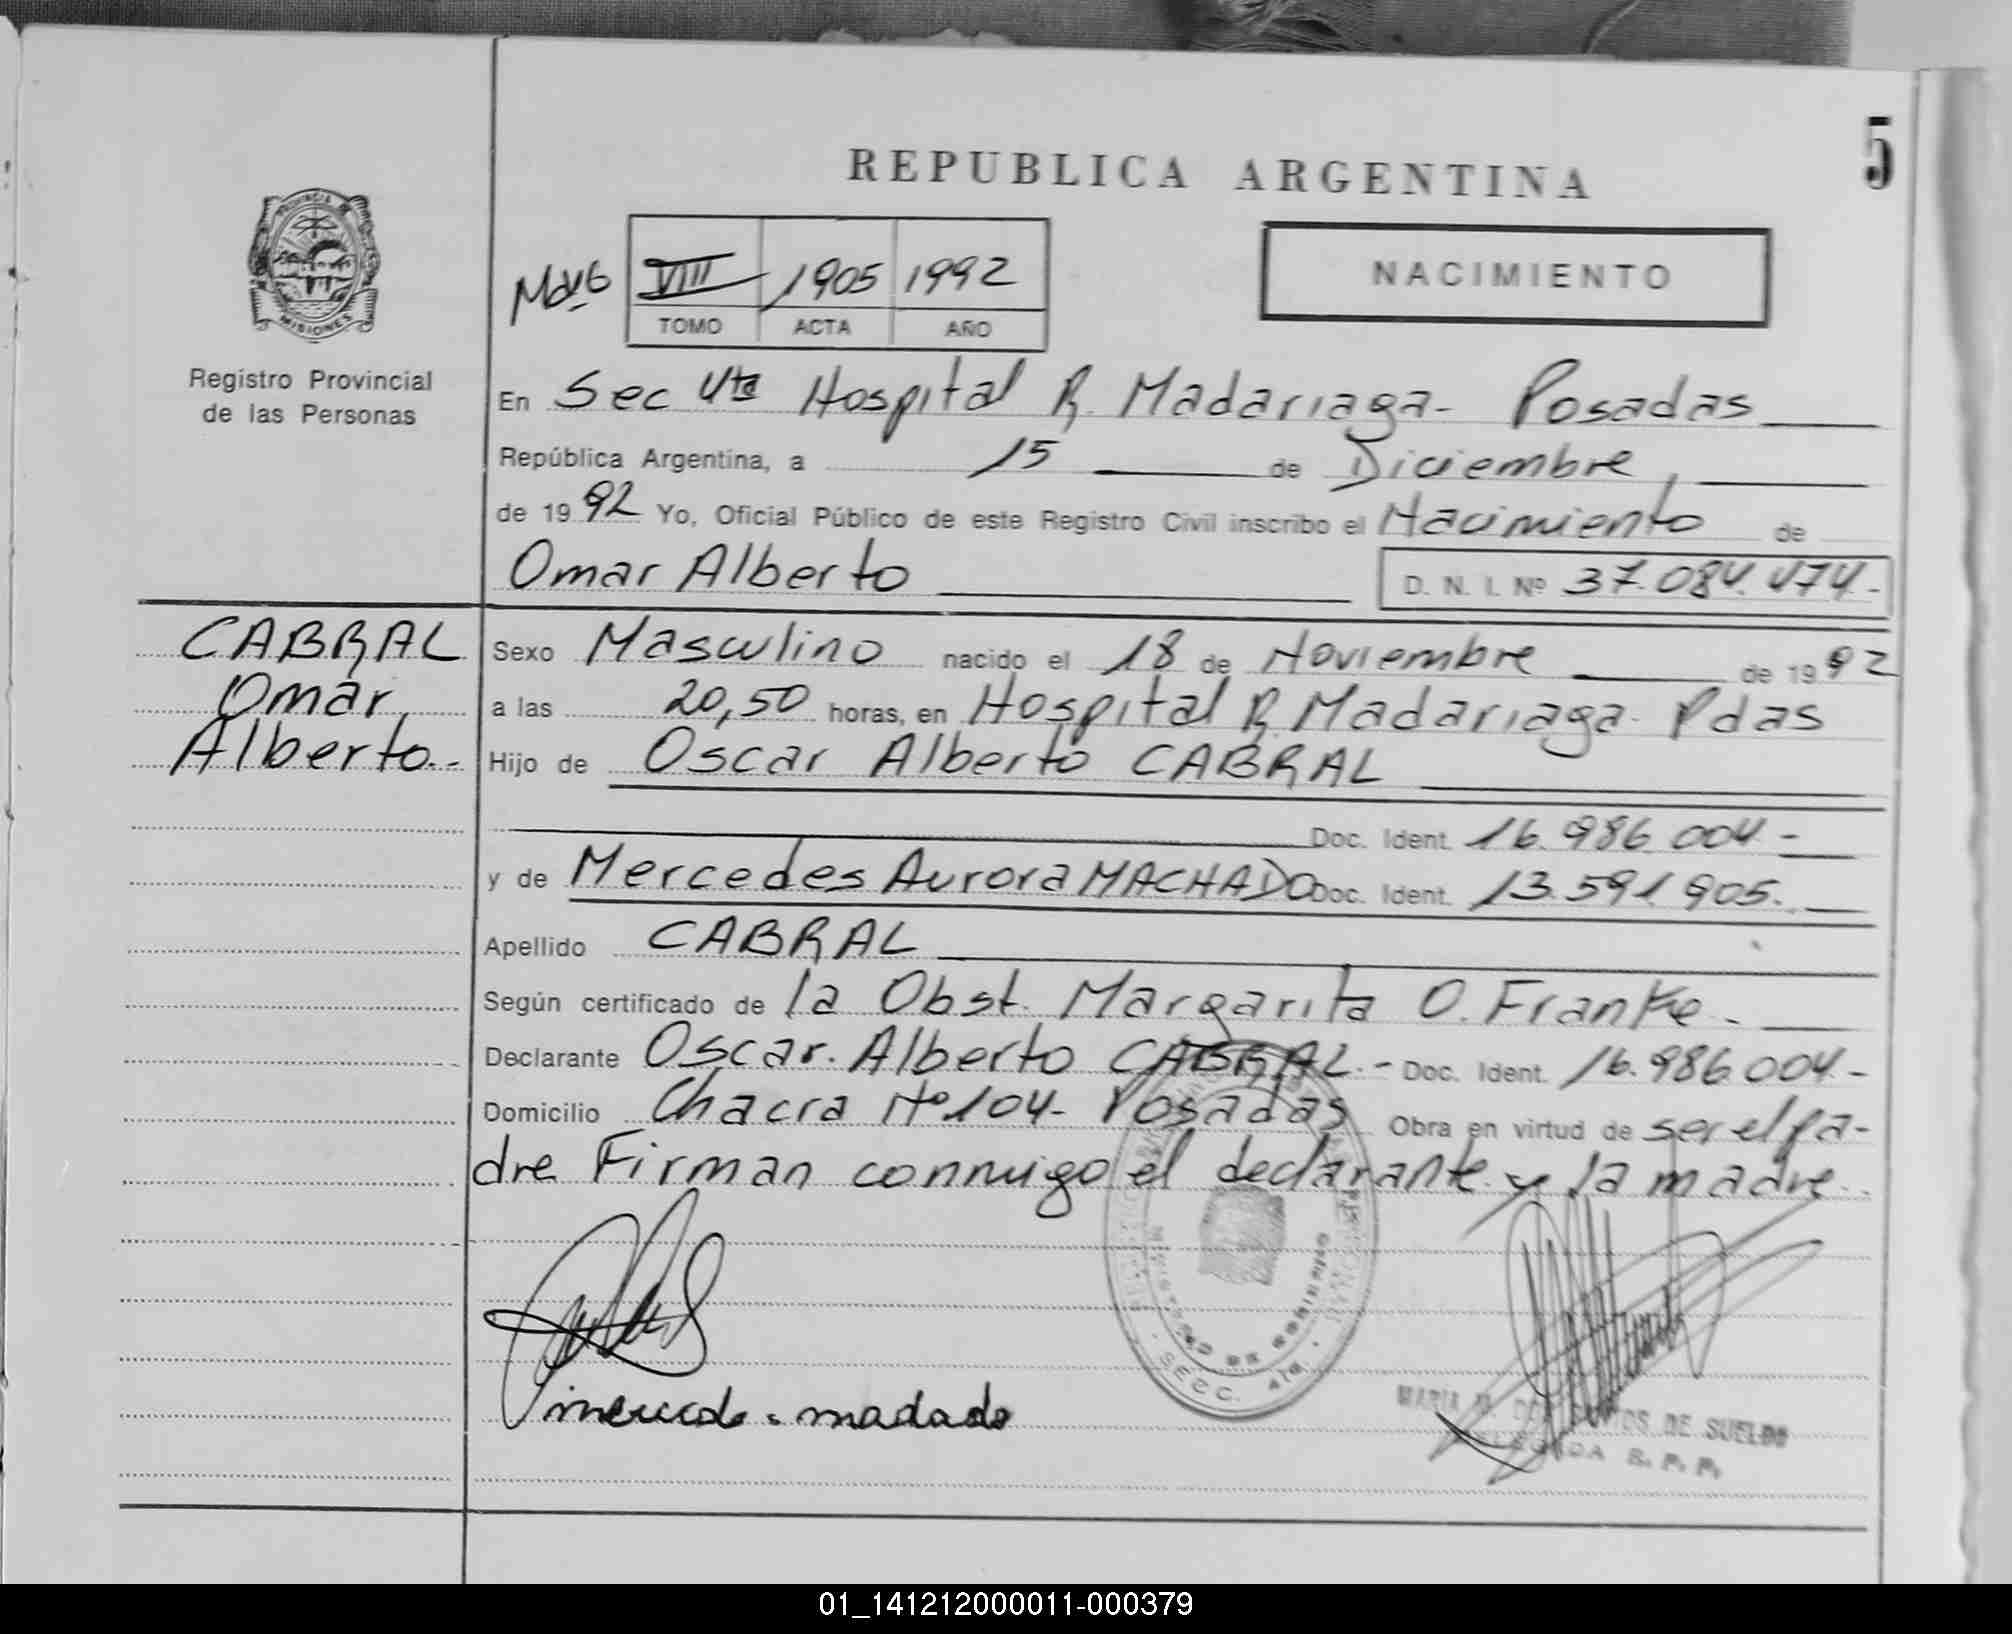 5
REPUBLICA ARGENTINA
PROVINCIA DE
MISIONES
Registro Provincial
de las Personas
VIII 1905 1992
TOMO ACTA AÑO
NACIMIENTO
En Sec 4ta Hospital R. Madariaga - Posadas
República Argentina, a 15 de Diciembre
de 1992 Yo, Oficial Público de este Registro Civil inscribo el Nacimiento de
Omar Alberto D. N. I. Nº 37.084.474.-
CABRAL
Omar
Alberto.-
Sexo Masculino nacido el 18 de Noviembre de 1992
a las 20,50 horas, en Hospital R. Madariaga Pdas
Hijo de Oscar Alberto CABRAL
Doc. Ident. 16.986.004.-
y de Mercedes Aurora MACHADO Doc. Ident. 13.591.905.
Apellido CABRAL
Según certificado de la Obst. Margarita O. Franke.
Declarante Oscar. Alberto CABRAL.- Doc. Ident. 16.986.004.-
Domicilio Chacra Nº 104- Posadas Obra en virtud de ser el pa-
dre Firman conmigo el declarante y la madre.
SECC. 4ta.
MARIA DOS SANTOS DE SUELDO
DELEGADA R. P. P.
01_141212000011-000379